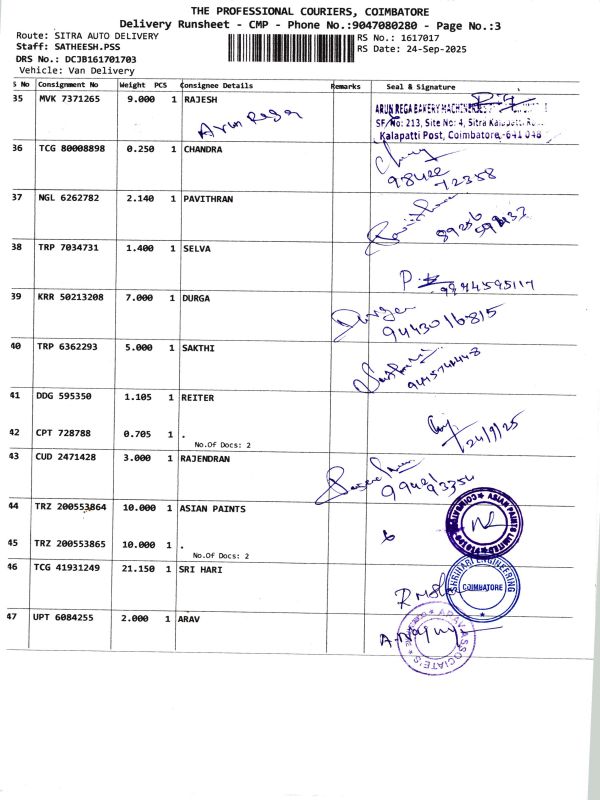 THE PROFESSIONAL COURIERS, COIMBATORE
Delivery Runsheet - CMP - Phone No.:9047080280 - Page No.:3
Route: SITRA AUTO DELIVERY RS No.: 1617017
Staff: SATHEESH.PSS RS Date: 24-Sep-2025
DRS No.: DCJB161701703
Vehicle: Van Delivery
S No Consignment No Weight PCS Consignee Details Remarks Seal & Signature
35 MVK 7371265 9.000 1 RAJESH
Arun Rega
ARUN REGA BAKERY
SF No: 213, Site No: 4, Sitra Kalapatti
Kalapatti Post, Coimbatore,-641 048
36 TCG 80008898 0.250 1 CHANDRA
98422
72358
37 NGL 6262782 2.140 1 PAVITHRAN
89256
38 TRP 7034731 1.400 1 SELVA
9944595117
39 KRR 50213208 7.000 1 DURGA
Durga
9443016815
40 TRP 6362293 5.000 1 SAKTHI
41 DDG 595350 1.105 1 REITER
24/9/25
42 CPT 728788 0.705 1 .
No.Of Docs: 2
43 CUD 2471428 3.000 1 RAJENDRAN
44 TRZ 200553864 10.000 1 ASIAN PAINTS
ASIAN PAINTS LIMITED
45 TRZ 200553865 10.000 1 .
No.Of Docs: 2
46 TCG 41931249 21.150 1 SRI HARI
SRIHARI ENGINEERING
COIMBATORE
47 UPT 6084255 2.000 1 ARAV
ARAV ASSOCIATE'S